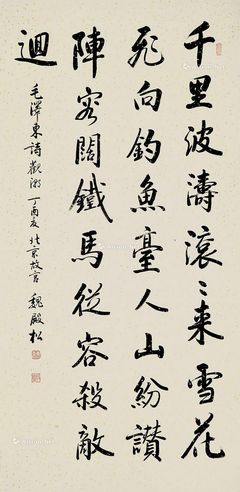 千里波濤滾〻来雪花
飛向釣魚臺人山紛讚
陣容闊鐵馬從容殺敵
迴
毛澤東詩觀潮丁酉夏北京故宫魏殿松